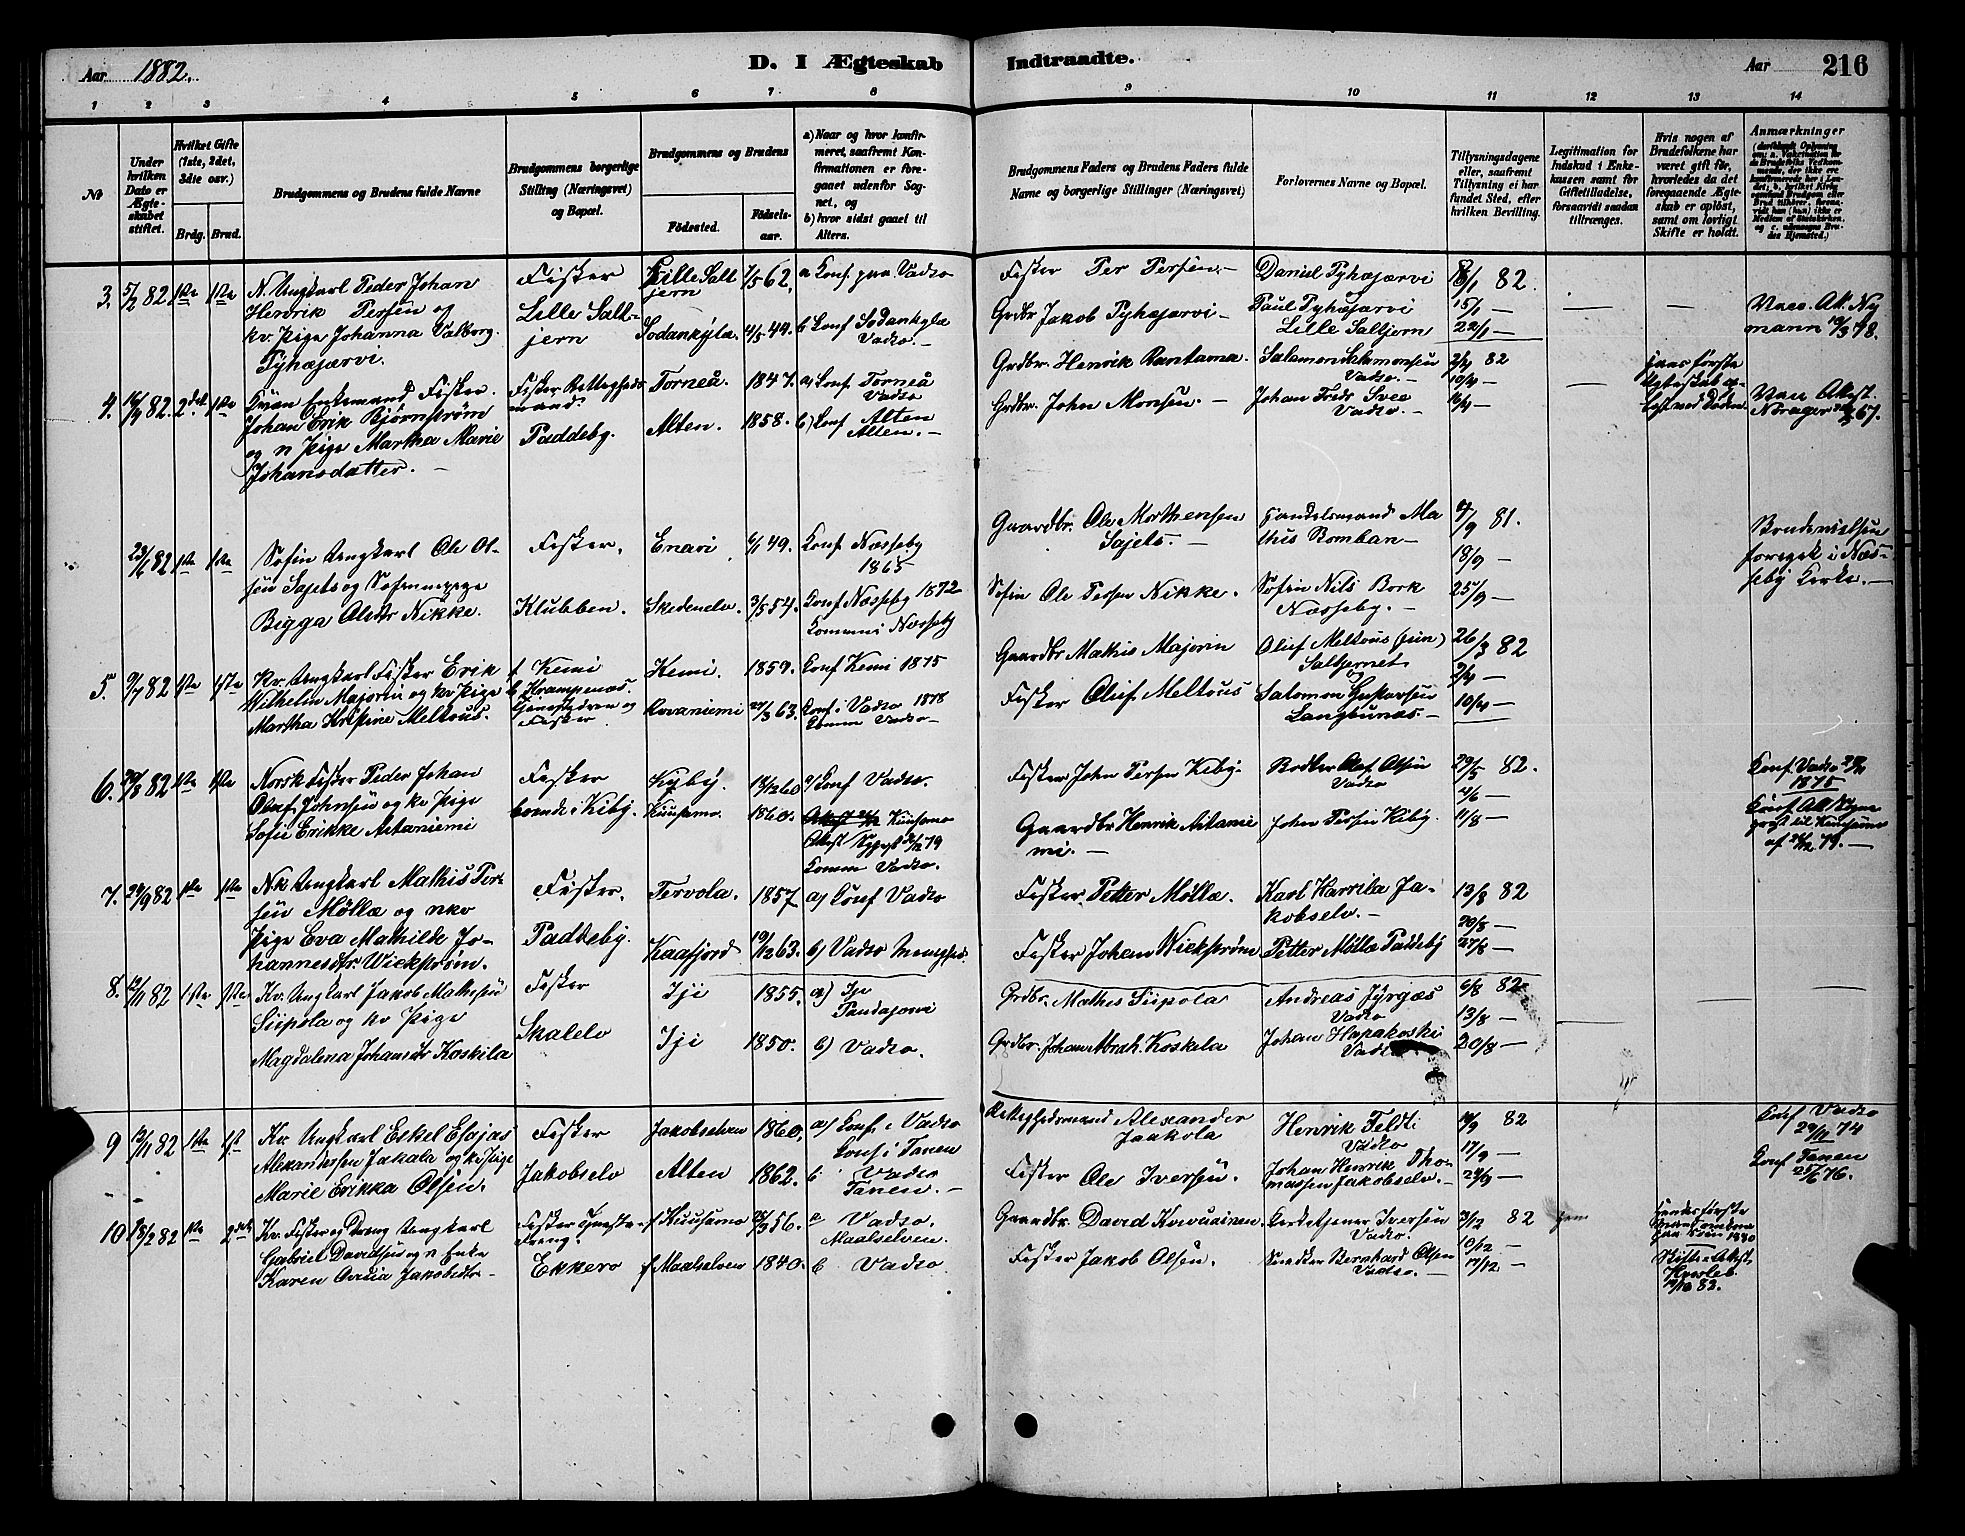 Aar 1882.
D. I Ægteskab Indtraadte.
Aar 216
1 2 3 4 5 6 7 8 9 10 11 12 13 14
No
Under hvilken Dato er Ægteskabet stiftet.
Hvilket Gifte (1ste, 2det, 3die osv.)
Brdg. Brud.
Brudgommens og Brudens fulde Navne
Brudgommens borgerlige Stilling (Næringsvei) og Bopæl.
Brudgommens og Brudens
Födested.
Födselsaar.
a) Naar og hvor konfirmeret, saafremt Konfirmationen er foregaaet udenfor Sognet, og
b) hvor sidst gaaet til Alters.
Brudgommens Faders og Brudens Faders fulde Navne og borgerlige Stillinger (Næringsvei)
Forlovernes Navne og Bopæl.
Tillysningsdagene eller, saafremt Tillysning ei har fundet Sted, efter hvilken Bevilling.
Legitimation for Indskud i Enkekassen samt for Giftetilladelse, forsaavidt saadan tiltrænges.
Hvis nogen af Brudefolkene har været gift för, hvorledes da det foregaaende Ægteskab er oplöst, samt om lovligt Skifte er holdt.
Anmærkninger
3. 5/2 82 1ste 1ste
N. Ungkarl Peder Johan
Henrik Persen og
kv. Pige Johanna Valborg
Pyhajærvi.
Fisker
Lille Saltjern
Lille Saltjern 1/5 62.
Sodankyla 4/5 44.
a Conf. paa Vadso
b Conf Sodankyla
Vadso.
Fisker Per Persen
Grdbr Jakob Pyhajærvi
Daniel Pyhajærvi
Paul Pyhajærvi
Lille Saltjern
8/1 82.
15/1
22/1
Vacc. Att. Nymann
4. 16/4 82 2det 1ste
Kvæn Enkemand Fisker
Johan Erik Bjørnstrøm
og n Pige Martha Marie
Johansdatter.
Fisker Rettighedsmand
Paddeby.
Torneå. 1847.
Alten. 1858.
a) Conf. Torneå
Vadso
b) Conf Alten
Alten.
Grdbr. Henrik Rantama.
Grdbr. John Monsen.
Salamon Salamonsen
Vadso.
Johan Fredr Svee
Vadso.
2/4 82
10/4
16/4
hans første
Ægteskab opløst ved Døden
Vacc Attest.
23/6 82 1ste 1ste
Søfin Ungkarl Ole Olsen
Sajets og Søfinnepige
Bigga Olsdtr Nikke.
Fisker.
Klubben.
Enari 6/1 49.
Skedenelv. 3/5 54.
Conf Næsseby
1865
Conf Næsseby 1872
Comm i Næsseby
Gaardbr. Ole Morthensen
Sajets.
Søfin Ole Persen Nikke.
Handelsmand Mathis
Romban
Søfin Nils Bork
Næsseby.
4/9 81.
18/9
25/9
Brudevielsen
foregik i Næsseby
Kirke.
5. 9/7 82 1ste 1ste
Kv. Ungkarl Fisker Erik
Wilhelm Majorin og kv Pige
Martha Kristine Meltous.
f Kemi
b Krampenæs.
Fisker.
Kemi. 1859.
Rovaniemi 63.
Conf Kemi 1875
Conf i Vadso 1878
Comm Vadso
Gaardbr Mathis Majorin
Fisker Oluf Meltous
Oluf Meltous (fin)
Saltjernet
Salomon Gustavsen
Langbunæs.
26/3 82
2/4
10/4
6. 82 1ste 1ste
Norsk Fisker Peder Johan
Oluf Johnsen og kv Pige
Sofie Erikke Aitaniemi
Fisker
boende i Kiby.
Kyby. 60
Kuusamo. 1860.
a) Conf Vadso.
Kuusamo
Comm Vadso.
Fisker John Persen Kiby.
Gaardbr Henrik Aitaniemi.
Bødker Olof Olsen
Vadso
John Persen Kiby.
29/5 82.
4/6
11/6
Conf. Vadso
1875
7. 24/9 82 1ste 1ste
Nk Ungkarl Mathis Persen
Möllæ og nkv
Pige Eva Mathilde Johannesdtr.
Wiekstrøm.
Fisker.
Paddeby.
Tervola. 1857
Kaafjord 19/12 63.
a) Conf Vadso
b) Vadso
Fisker Petter Möllæ.
Fisker Johan Wiekstrøm
Karl Harrila Jakobselv.
Petter Möllæ Paddeby
13/8 82
20/8
27/8
8. 12/11 82 1ste 1ste
Kv. Ungkarl Jakob Mathisen
Siipola og kv Pige
Magdalena Johansdr Koskila
Fisker
Skalelv
Iji 1855.
Iji 1850.
a) Ije
b) Vadso.
Grdbr. Mathis Siipola
Grdbr. Johan Abrah. Koskela
Andreas Jyrgæs
Vadso
Johan Hapakoski
Vadso
6/8 82
13/8
20/8
9 12/11 82 1ste 1st
Kv. Ungkarl Eskel Esajas
Alexandersen Jakola og kv Pige
Marie Erikka Olsen.
Fisker
Jakobselv
Jakobselven 1860.
Alten 1862.
a) Conf i Vadso
Conf i Tanen
b Vadso
Tanen.
Rettighedsmand Alexander
Jaakola
Fisker Ole Iversen.
Henrik Feldt
Vadso
Johan Henrik Thomassen
Jakobselv.
10/9 82
17/9
24/9
Conf Vadso
74
Conf Tanen
76.
10 82 1ste 2det
Kv. Fisker og Dreng Ungkarl
Gabriel Davidsen og n Enke
Karen Ovidia Jakobsdtr
Fisker
Ekkerø
f Kuusamo 56.
f Maalselven 1840.
a Vadso.
Maalselven.
b Vadso
Gaardbr. David Kowuainen.
Fisker Jakob Olsen.
Iversen
Vadso.
Snedker Bernhard Olsen
Vadso.
3/12 82
10/12
17/12
hendes første
Mand
1880
Skifte Attest
82.